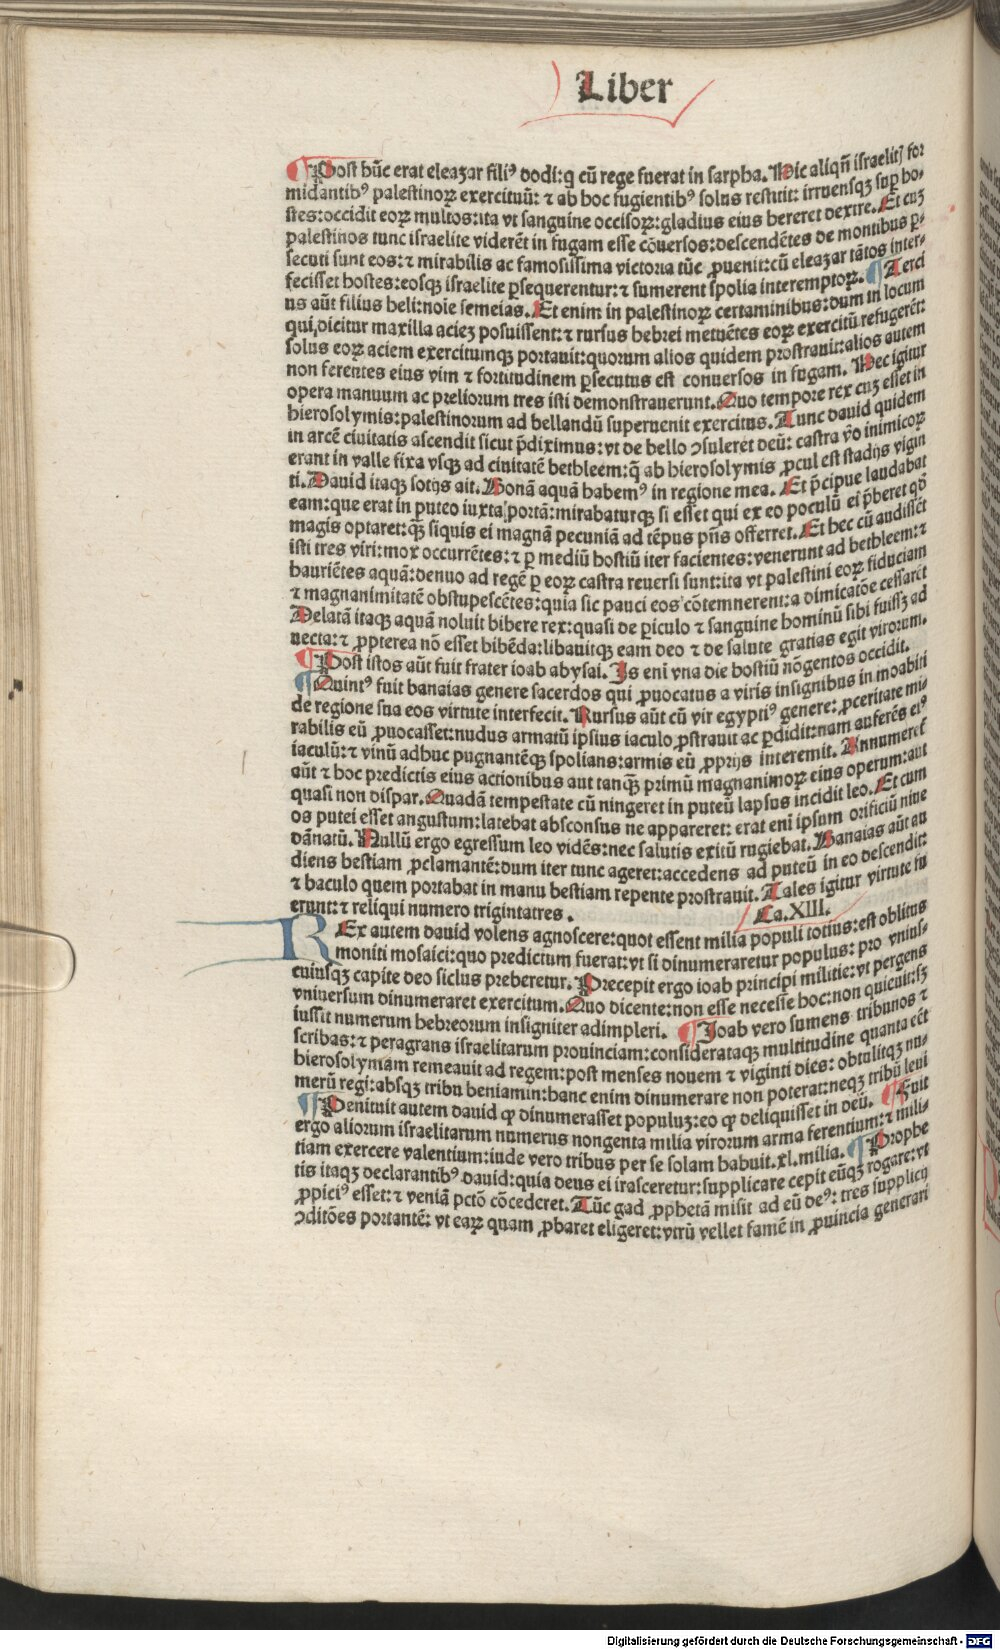 Liber
¶ Post hūc erat eleazar filiꝰ dodi: q cū rege fuerat in sarpha. Hic aliqn̄ israelitꝭ for
midantibꝰ palestinoꝝ exercituū: ⁊ ab hoc fugientibꝰ solus restitit: irruensqꝫ suꝑ ho-
stes: occidit eoꝝ multos: ita vt sanguine occisoꝝ: gladius eius hereret dextre. Et cuꝫ
palestinos tunc israelite viderēt in fugam esse cōuersos: descendētes de montibus ꝑ-
secuti sunt eos: ⁊ mirabilis ac famosissima victoria tūc ꝓuenit: cū eleazar tātos inter-
fecisset hostes: eosqꝫ israelite ꝑsequerentur: ⁊ sumerent spolia interemptoꝝ. ¶ Terci
us aūt filius heli: noie semeias. Et enim in palestinoꝝ certaminibus: dum in locum
qui dicitur maxilla acieꝫ posuissent: ⁊ rursus hebrei metuētes eoꝝ exercitū refugerēt:
solus eoꝝ aciem exercitumqꝫ portauit: quorum alios quidem prostrauit: alios autem
non ferentes eius vim ⁊ fortitudinem ꝑsecutus est conuersos in fugam. Hec igitur
opera manuum ac preliorum tres isti demonstrauerunt. Quo tempore rex cuꝫ esset in
hierosolymis: palestinorum ad bellandū superuenit exercitus. Tunc dauid quidem
in arcē ciuitatis ascendit sicut p̄diximus: vt de bello ꝯsuleret deū: castra v̄o inimicoꝝ
erant in valle fixa vsqꝫ ad ciuitatē bethleem: q̄ ab hierosolymis ꝓcul est stadijs vigin
ti. Dauid itaqꝫ sotijs ait. Bonā aquā habemꝰ in regione mea. Et p̄cipue laudabat
eam: que erat in puteo iuxta portā: mirabaturqꝫ si esset qui ex eo poculū ei p̄beret qō
magis optaret: qꝫ̄ siquis ei magnā pecuniā ad tēpus pn̄s offerret. Et hec cū audissēt
isti tres viri: mox occurrētes: ⁊ ꝑ mediū hostiū iter facientes: venerunt ad bethleem: ⁊
hauriētes aquā: denuo ad regē ꝑ eoꝝ castra reuersi sunt: ita vt palestini eoꝝ fiduciam
⁊ magnanimitatē obstupescētes: quia sic pauci eos cōtemnerent: a dimicatōe cessarēt
Delatā itaqꝫ aquā noluit bibere rex: quasi de ꝑiculo ⁊ sanguine hominū sibi fuissꝫ ad
uecta: ⁊ ꝓpterea nō esset bibēda: libauitqꝫ eam deo ⁊ de salute gratias egit virorum.
¶ Post istos aūt fuit frater ioab abysai. Is eni vna die hostiū nōgentos occidit.
¶ Quintꝰ fuit banaias genere sacerdos qui ꝓuocatus a viris insignibus in moabiti
de regione sua eos virtute interfecit. Rursus aūt cū vir egyptiꝰ genere: ꝓceritate mi-
rabilis eū ꝓuocasset: nudus armatū ipsius iaculo ꝓstrauit ac ꝑdidit: nam auferēs eiꝰ
iaculū: ⁊ vinū adhuc pugnantēqꝫ spolians: armis eū ꝓprijs interemit. Annumeret̄
aūt ⁊ hoc predictis eius actionibus aut tanqꝫ̄ primū magnanimoꝝ eius operum: aut
quasi non dispar. Quadā tempestate cū ningeret in puteū lapsus incidit leo. Et cum
os putei esset angustum: latebat absconsus ne appareret: erat eni ipsum orificiū niue
dānatū. Nullū ergo egressum leo vidēs: nec salutis exitū rugiebat. Banaias aūt au
diens bestiam ꝓclamantē: dum iter tunc ageret: accedens ad puteū in eo descendit:
⁊ baculo quem portabat in manu bestiam repente prostrauit. Tales igitur virtute fu
erunt: ⁊ reliqui numero trigintatres. Ca. XIII.
REx autem dauid volens agnoscere: quot essent milia populi totius: est oblitus
moniti mosaici: quo predictum fuerat: vt si dinumeraretur populus: pro vnius-
cuiusqꝫ capite deo siclus preberetur. Precepit ergo ioab principi militie: vt pergens
vniuersum dinumeraret exercitum. Quo dicente: non esse necesse hoc: non quieuit: sꝫ
iussit numerum hebreorum insigniter adimpleri. ¶ Joab vero sumens tribunos ⁊
scribas: ⁊ peragrans israelitarum prouinciam: considerataqꝫ multitudine quanta eēt
hierosolymam remeauit ad regem: post menses nouem ⁊ viginti dies: obtulitqꝫ nu-
merū regi: absqꝫ tribu beniamin: hanc enim dinumerare non poterat: neqꝫ tribū leui
¶ Penituit autem dauid ꝙ dinumerasset populuꝫ: eo ꝙ deliquisset in deū. ¶ Fuit
ergo aliorum israelitarum numerus nongenta milia virorum arma ferentium: ⁊ mili-
tiam exercere valentium: iude vero tribus per se solam habuit. xl. milia. ¶ Prophe
tis itaqꝫ declarantibꝰ dauid: quia deus ei irasceretur: supplicare cepit eūqꝫ rogare: vt
ꝓpiciꝰ esset: ⁊ veniā pctō cōcederet. Tūc gad ꝓphetā misit ad eū deꝰ: tres supplicij
ꝯditōes portantē: vt eaꝝ quam ꝓbaret eligeret: vtrū vellet famē in ꝓuincia generari
Digitalisierung gefördert durch die Deutsche Forschungsgemeinschaft - DFG